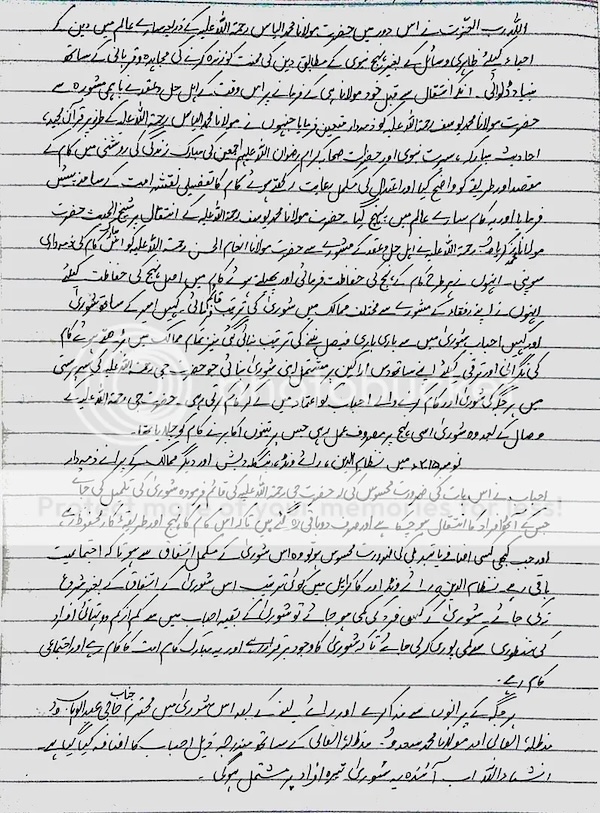 اللہ رب العزت نے اس دور میں حضرت مولانا محمد الیاس رحمۃ اللہ علیہ کے ذریعہ سارے عالم میں دین کے
احیاء کیلئے ظاہری وسائل کے بغیر نہج نبوی کے مطابق دین کی محنت کو زندہ کرنے کی مجاہدہ و قربانی کے ساتھ
بنیاد ڈلوائی۔ انکے انتقال سے قبل خود مولانا ہی کے فرمانے پر اس وقت کے اہل حل و عقد نے باہمی مشورہ سے
حضرت مولانا محمد یوسف رحمۃ اللہ علیہ کو ذمہ دار متعین فرمایا جنہوں نے مولانا محمد الیاس رحمۃ اللہ علیہ کے طرز پر قرآن مجید،
احادیث مبارکہ، سیرت نبوی اور حضرات صحابہ کرام رضوان اللہ علیہم اجمعین کی مبارک زندگی کی روشنی میں کام کے
مقصد اور طریقہ کو واضح کیا اور اعتدال کی مکمل رعایت رکھتے ہوئے کام کا تفصیلی نقشہ امت کے سامنے پیش
فرمایا اور یہ کام سارے عالم میں پہنچ گیا۔ حضرت مولانا محمد یوسف رحمۃ اللہ علیہ کے انتقال پر شیخ الحدیث حضرت
مولانا محمد زکریا رحمۃ اللہ علیہ نے اہل حل و عقد کے مشورے سے حضرت مولانا انعام الحسن رحمۃ اللہ علیہ کو اس کام کی ذمہ داری
سونپی۔ انہوں نے ہر طرح کام کے نہج کی حفاظت فرمائی اور پھیلتے ہوئے کام میں اصل نہج کی حفاظت کیلئے
انہوں نے اپنے رفقاء کے مشورے سے مختلف ممالک میں شوریٰ کی ترتیب قائم فرمائی۔ کہیں امیر کے ساتھ شوریٰ
اور کہیں احباب شوریٰ میں سے باری باری فیصل بننے کی ترتیب بنائی گئی نیز تمام ممالک میں بڑھتے ہوئے کام
کی نگرانی اور ترقی کیلئے اپنے ساتھ دس اراکین پر مشتمل اپنی شوریٰ بنائی جو حضرت جی رحمۃ اللہ علیہ کی سرپرستی
میں ہر جگہ کی شوریٰ اور کام کرنے والے احباب کو اعتماد میں لے کر کام کرتی رہی۔ حضرت جی رحمۃ اللہ علیہ کے
وصال کے بعد وہ شوریٰ اسی نہج پر مصروف عمل رہی جس پر تینوں اکابر نے کام کو چلایا تھا۔
نومبر ۲۰۱۵ء میں نظام الدین، رائے ونڈ، بنگلہ دیش اور دیگر ممالک کے پرانے ذمہ دار
احباب نے اس بات کی ضرورت محسوس کی کہ حضرت جی رحمۃ اللہ علیہ کی قائم فرمودہ شوریٰ کی تکمیل کی جائے
جس کے آٹھ افراد کا انتقال ہو چکا ہے اور صرف دو باقی رہ گئے ہیں تاکہ اس کام کا نہج اور طریقہ کار محفوظ رہے
اور جب کبھی کسی اضافہ یا تبدیلی کی ضرورت محسوس ہو تو وہ اس شوریٰ کے مکمل اتفاق سے ہو تاکہ اجتماعیت
باقی رہے۔ نظام الدین، رائے ونڈ اور کاکرائیل میں کوئی ترتیب اس شوریٰ کے اتفاق کے بغیر شروع
نہ کی جائے۔ شوریٰ کے کسی فرد کی کمی ہو جائے تو شوریٰ کے بقیہ احباب میں سے کم از کم دو تہائی افراد
کی منظوری سے کمی پوری کر لی جائے تاکہ شوریٰ کا وجود برقرار رہے اور یہ مبارک کام امت کا کام رہے اور اجتماعی
کام رہے۔
ہر جگہ کے پرانوں سے مذاکرے اور رائے لینے کے بعد اس شوریٰ میں محترم جناب حاجی عبدالوہاب صاحب
مدظلہ العالی اور مولانا محمد سعد مدظلہ العالی کے ساتھ مندرجہ ذیل احباب کا اضافہ کیا گیا ہے۔
انشاء اللہ اب آئندہ یہ شوریٰ تیرہ افراد پر مشتمل ہوگی۔
photobucket
Protect more of your memories for less!